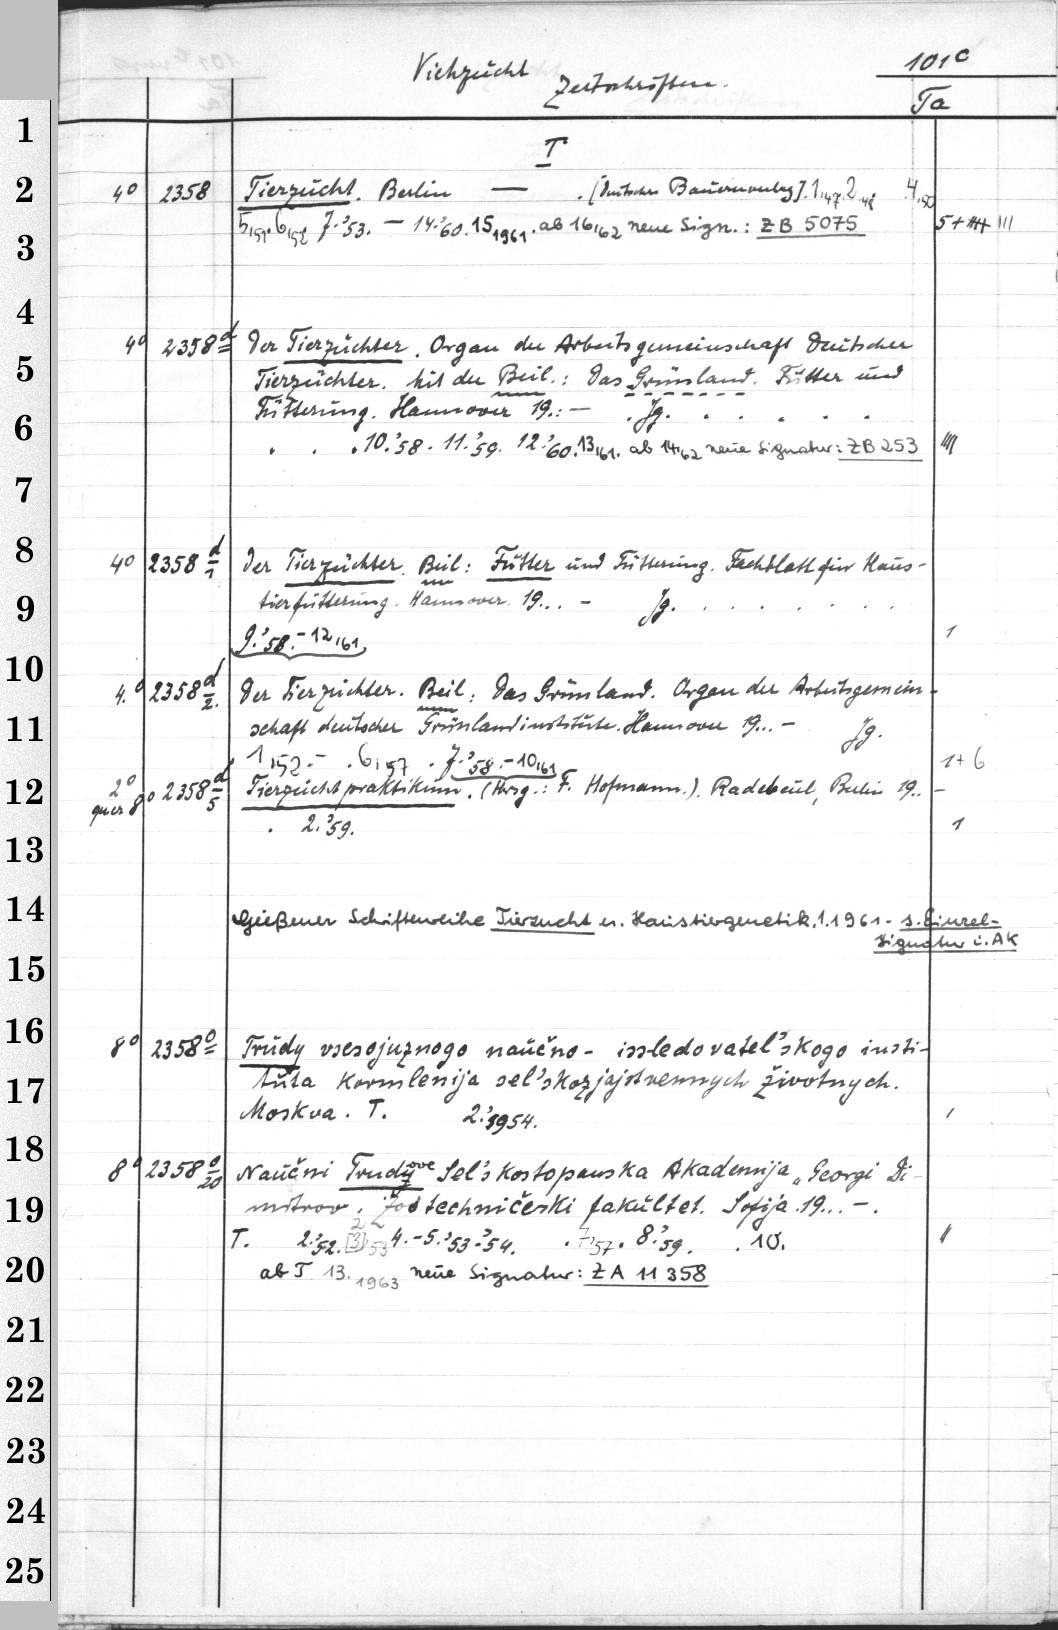 101c
Viehzucht
Zeitschriften.
Ta
T
1
2
3
4
5
6
7
8
9
10
11
12
13
14
15
16
17
18
19
20
21
22
23
24
25
4° 2358 Tierzucht. Berlin — . [Deutscher Bauernverlag]. 1,47. 2,48 4,50
5,51. 6,52 7.'53. — 14.'60. 15 1961. ab 16,62 neue Sign.: ZB 5075 5+ |||| |||
4° 2358 d Der Tierzüchter. Organ der Arbeitsgemeinschaft Deutscher
Tierzüchter. Mit der Beil.: Das Grünland. Futter und
Fütterung. Hannover 19.: — . Jg. . . . . .
. . . 10.'58. 11.'59. 12.'60. 13,61. ab 14,62 neue Signatur: ZB 253 ||||
4° 2358 d/1 Der Tierzüchter. Beil: Futter und Fütterung. Fachblatt für Haus-
tierfütterung. Hannover. 19... – Jg. . . . . . . .
9.'58. – 12,61. 1
4.° 2358 d/2. Der Tierzüchter. Beil: Das Grünland. Organ der Arbeitsgemein-
schaft deutscher Grünlandinstitute. Hannover 19... – Jg.
1,52. – . 6,57 . 7.'58. – 10,61 1+6
2°
quer 8° 2358 d/5 Tierzuchtpraktikum. (Hrsg.: F. Hofmann.). Radebeul, Berlin 19.. –
. 2.'59. 1
Gießener Schriftenreihe Tierzucht u. Haustiergenetik. 1.1961 - s. Einzel-
signatur i. AK
8° 2358 o Trudy vsesojuznogo naučno- issledovatel'skogo insti-
tuta kormlenija sel'skozjajstvennych životnych.
Moskva. T. 2.'1954. 1
8° 2358 o/20 Naučni Trudove Sel'skostopanska Akademija „Georgi Di-
mitrov. Zootechničeski fakultet. Sofija 19... –.
T. 2.'52. [3]'53 4. – 5.'53-'54. . 7,'57. 8.'59. . 10. ||
ab T 13. 1963 neue Signatur: ZA 11 358